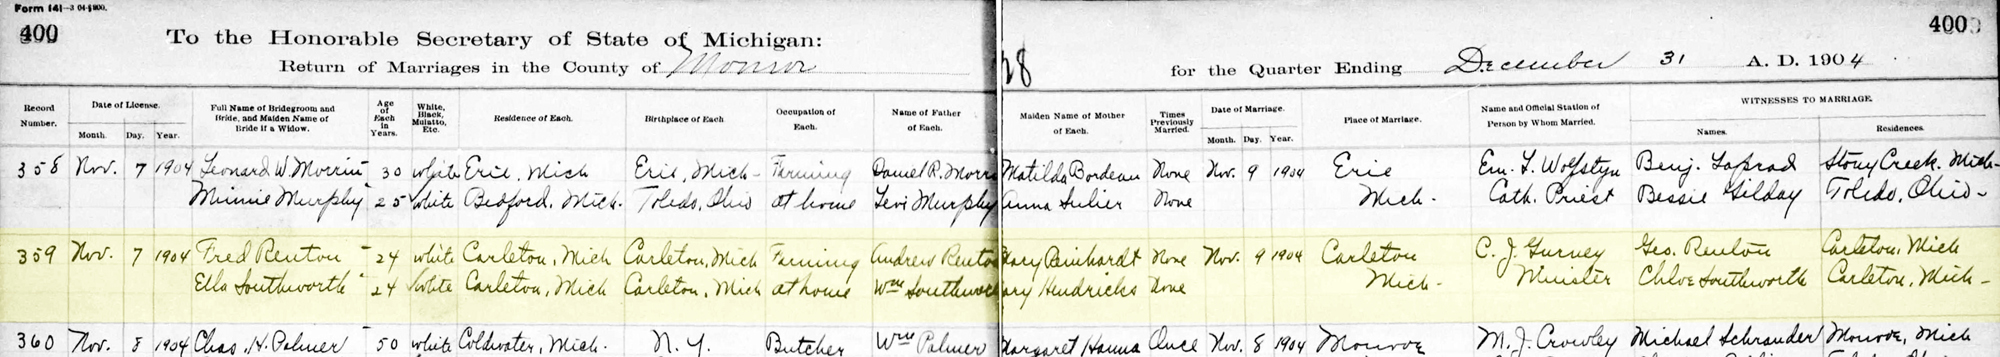 Form 141
400 400
To the Honorable Secretary of State of Michigan:
Return of Marriages in the County of Monroe for the Quarter Ending December 31 A. D. 1904
28
Record Number. Date of License. Month. Day. Year. Full Name of Bridegroom and Bride, and Maiden Name of Bride if a Widow. Age of Each in Years. White, Black, Mulatto, Etc. Residence of Each. Birthplace of Each. Occupation of Each. Name of Father of Each. Maiden Name of Mother of Each. Times Previously Married. Date of Marriage. Month. Day. Year. Place of Marriage. Name and Official Station of Person by Whom Married. WITNESSES TO MARRIAGE. Names. Residences.
358 Nov. 7 1904 Leonard W. Morrin 30 white Erie, Mich Erie, Mich Farming Daniel R. Morri Matilda Bordeau None Nov. 9 1904 Erie Em. L. Wolfstyn Benj. Laprad Stony Creek. Mich
Minnie Murphy 25 white Bedford, Mich. Toledo, Ohio at home Levi Murphy Anna Sulier None Mich. Cath. Priest Bessie Gilday Toledo, Ohio
359 Nov. 7 1904 Fred Renton 24 white Carleton, Mich Carleton, Mich Farming Andrew Rento Mary Reinhardt None Nov. 9 1904 Carleton C. J. Gurney Geo. Renton Carleton, Mich
Ella Southworth 24 white Carleton, Mich Carleton, Mich at home Wm Southwor ary Hendricks None Mich. Minister Chloe Southworth Carleton, Mich
360 Nov. 8 1904 Chas. H. Palmer 50 white Coldwater, Mich. N. Y. Butcher Wm Palmer Margaret Hanna Once Nov. 8 1904 Monroe M. J. Crowley Michael Schrauder Monroe, Mich